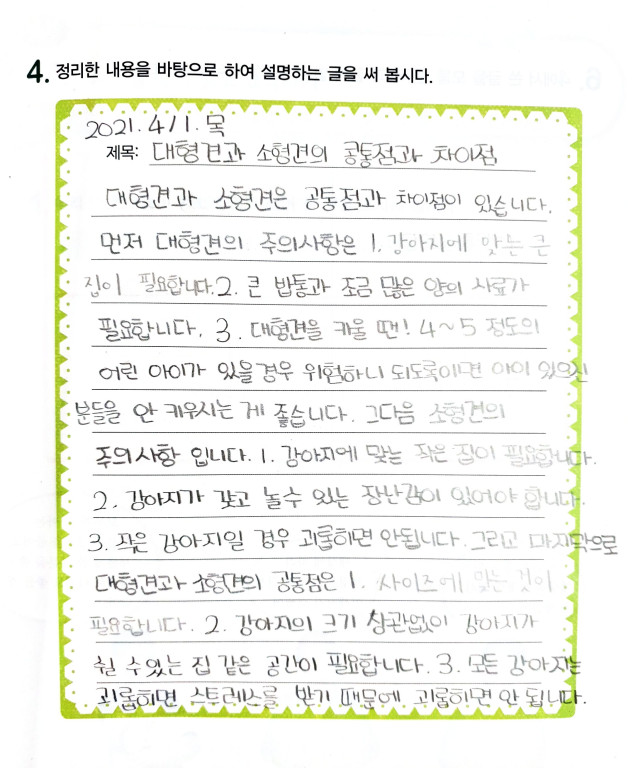 4. 정리한 내용을 바탕으로 하여 설명하는 글을 써 봅시다.
2021. 4/1. 목
제목: 대형견과 소형견의 공통점과 차이점
대형견과 소형견은 공통점과 차이점이 있습니다.
먼저 대형견의 주의사항은 1. 강아지에 맞는 큰
집이 필요합니다. 2. 큰 밥통과 조금 많은 양의 사료가
필요합니다. 3. 대형견을 키울 땐! 4~5 정도의
어린 아이가 있을경우 위험하니 되도록이면 아이 있으신
분들을 안 키우시는 게 좋습니다. 그다음 소형견의
주의사항 입니다. 1. 강아지에 맞는 작은 집이 필요합니다.
2. 강아지가 갖고 놀수 있는 장난감이 있어야 합니다.
3. 작은 강아지일 경우 괴롭히면 안됩니다. 그리고 마지막으로
대형견과 소형견의 공통점은 1. 사이즈에 맞는 것이
필요합니다. 2. 강아지의 크기 상관없이 강아지가
쉴 수있는 집 같은 공간이 필요합니다. 3. 모든 강아지는
괴롭히면 스트레스를 받기 때문에 괴롭히면 안 됩니다.